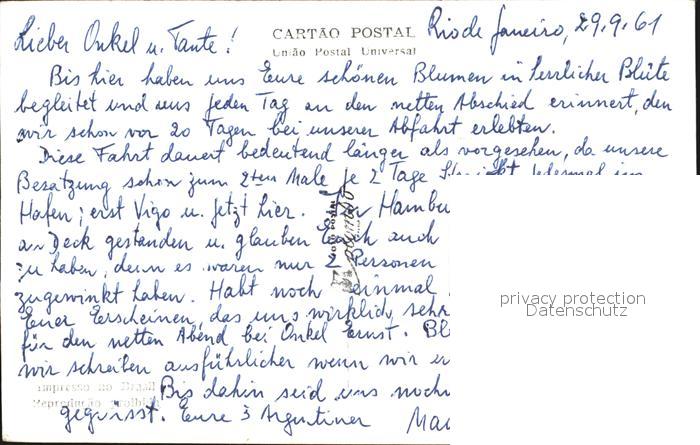 Lieber Onkel u. Tante!
CARTÃO POSTAL
União Postal Universal
Rio de Janeiro, 29.9.61
Bis hier haben uns Eure schönen Blumen in herrlicher Blüte
begleitet und uns jeden Tag an den netten Abschied erinnert, den
wir schon vor 20 Tagen bei unserer Abfahrt erlebten.
Diese Fahrt dauert bedeutend länger als vorgesehen, da unsere
Besatzung schon zum 2ten Male je 2 Tage jedesmal im
Hafen; erst Vigo u. jetzt hier. Hambu
an Deck gestanden u. glauben Euch auch
zu haben, denn es waren nur 2 Personen
zugewinkt haben. Habt noch einmal
Euer Erscheinen, das uns wirklich sehr
für den netten Abend bei Onkel Ernst. Bl
wir schreiben ausführlicher wenn wir
Impresso no Brasil
Bis dahin seid uns noch
Reprodução proibida
gegrüsst. Eure 3 Argentiner
privacy protection
Datenschutz